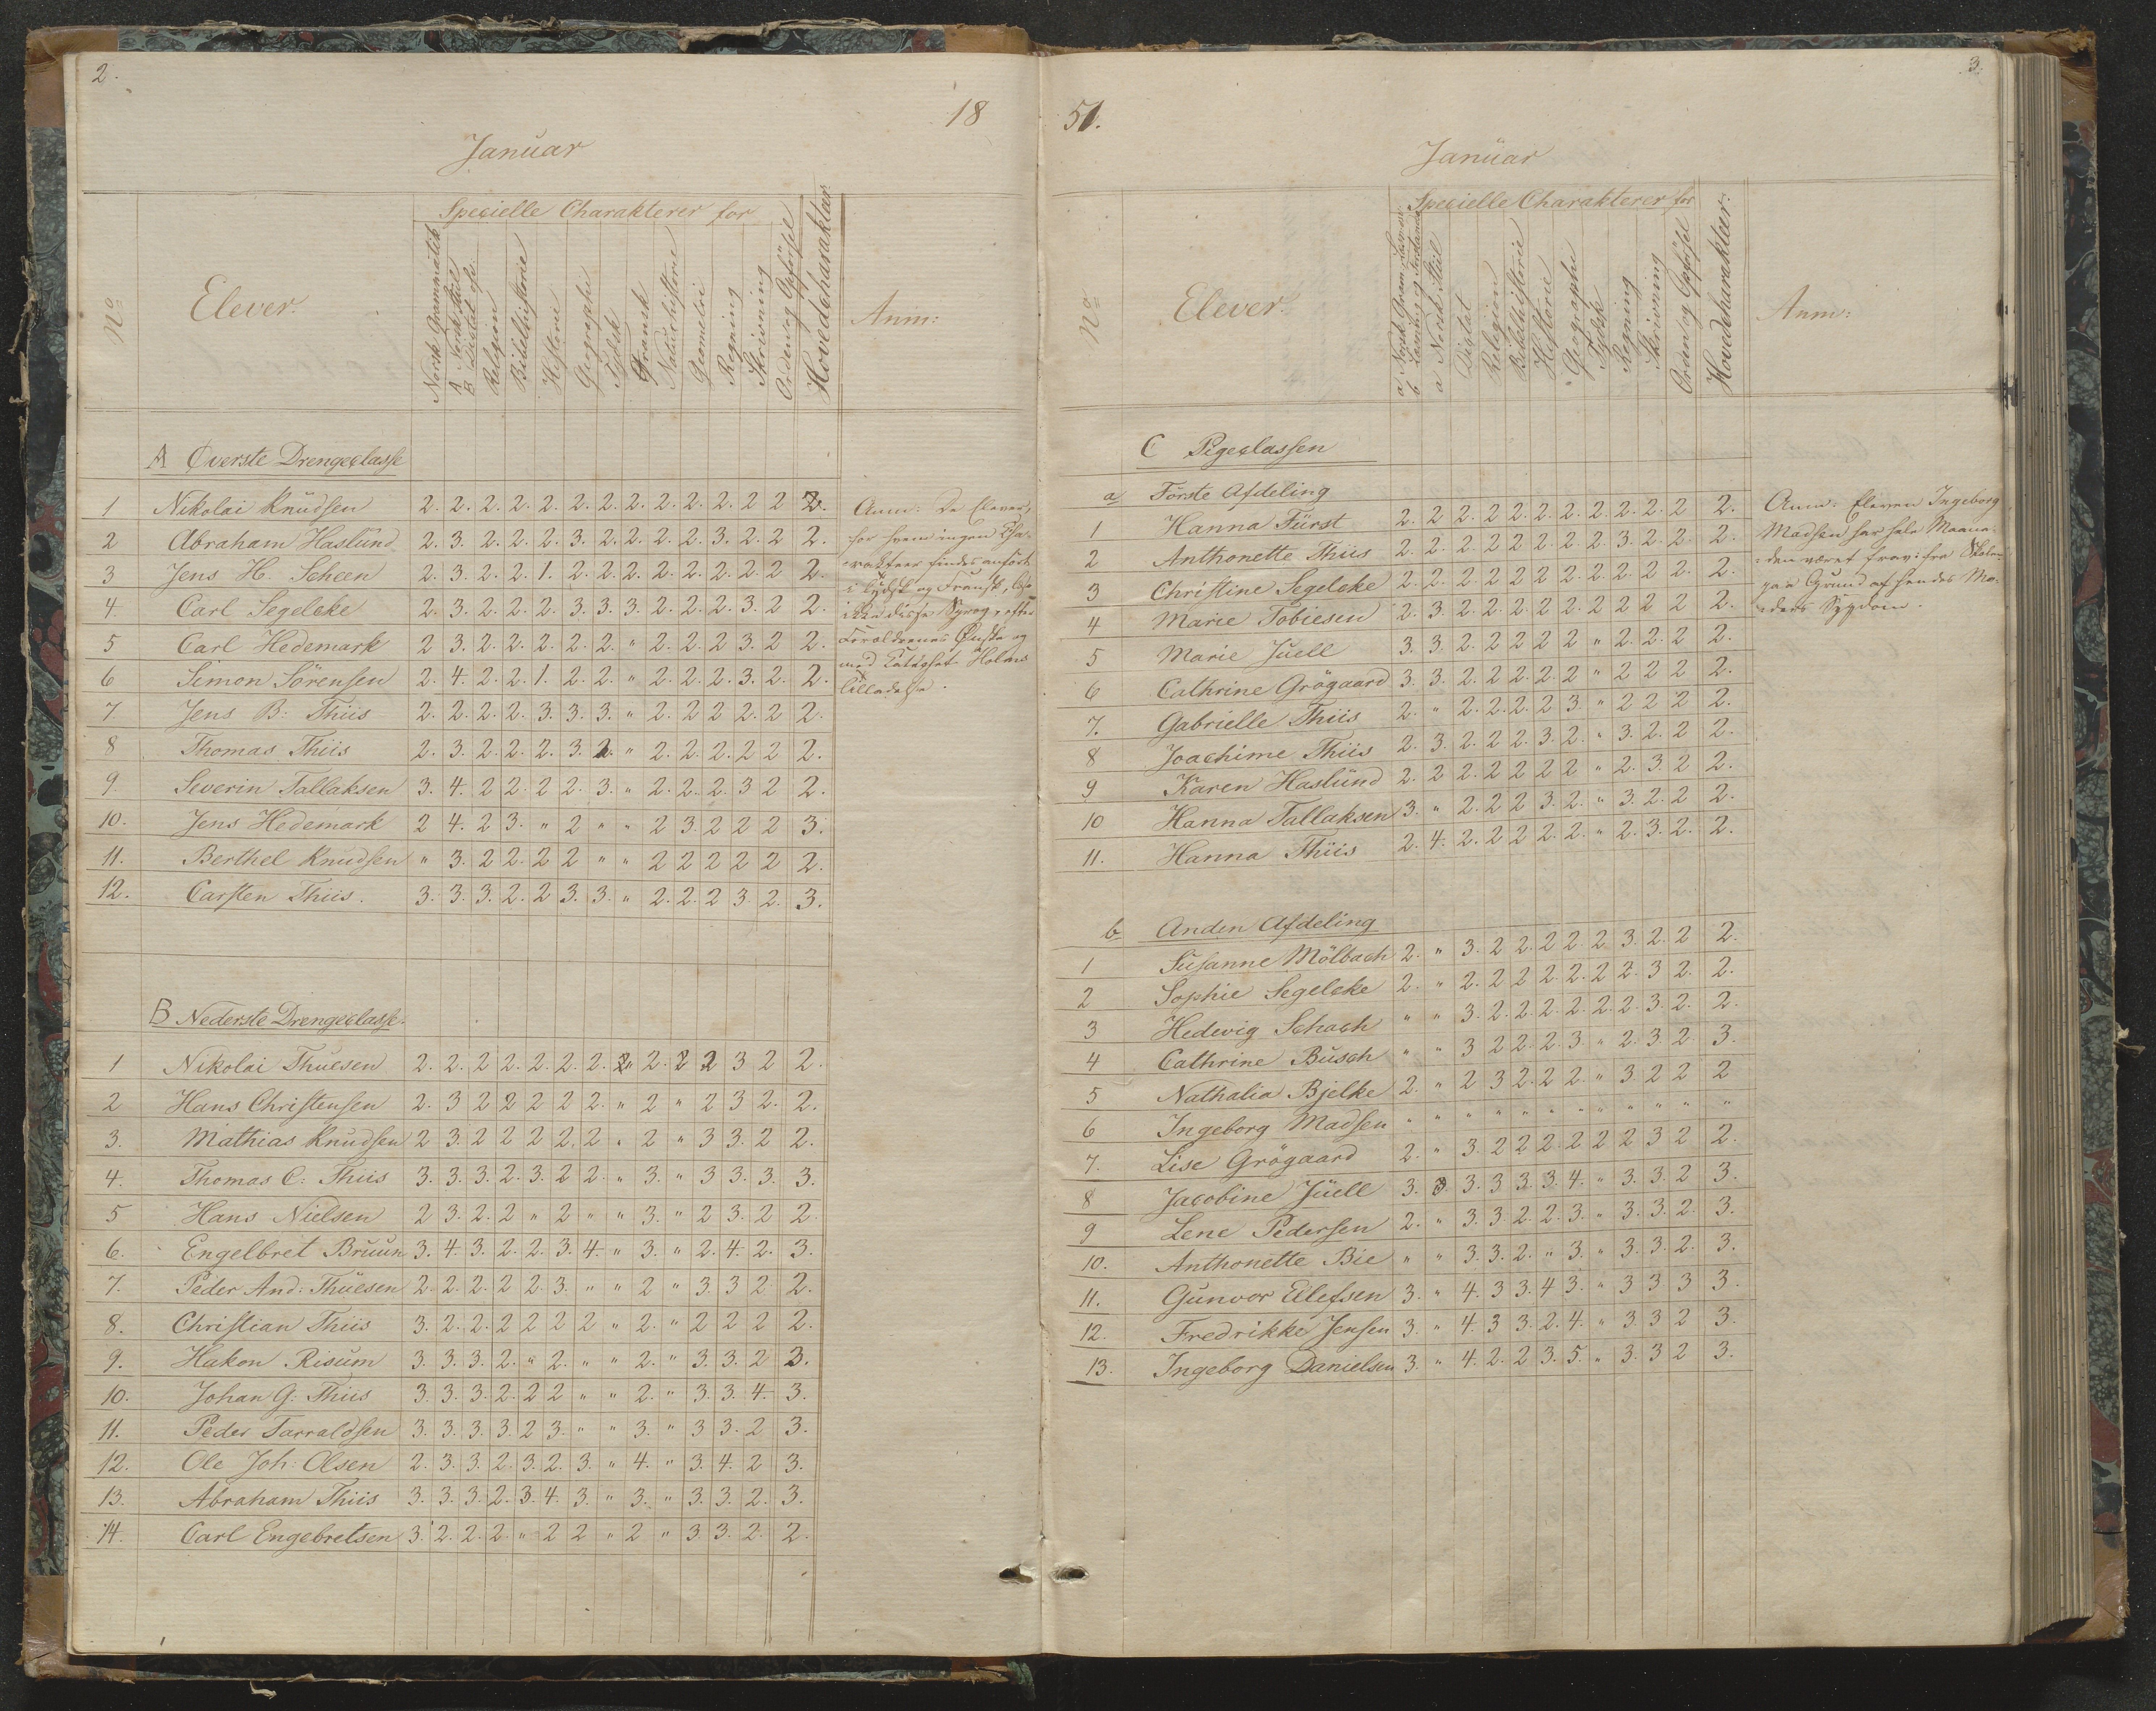 2.
18
Januar
Specielle Charakterer for
No
Elever.
Norsk Grammatik
A Norsk Stiil
B Dictat
Religion
Bibelhistorie
Historie
Geographi
Tydsk
Fransk
Naturhistorie
Geometri
Regning
Skrivning
Orden og Opførsel
Hovedcharakteer
Anm:
A Øverste Drengeclasse
1 Nikolai Knudsen 2. 2. 2. 2. 2. 2. 2. 2. 2. 2. 2. 2 2 2.
2 Abraham Haslund 2. 3. 2. 2. 2. 3. 2. 2. 2. 2. 3. 2. 2 2.
3 Jens H. Scheen 2. 3. 2. 2. 1. 2. 2. 2. 2. 2. 2. 2. 2 2.
4. Carl Segelcke 2. 3. 2. 2. 2. 3. 3. 3. 2. 2. 2. 3. 2 2.
5 Carl Hedemark 2 3. 2. 2. 2. 2. 2. " 2. 2. 2 3. 2 2.
6 Simon Sörensen 2. 4. 2. 2. 1. 2. 2. " 2. 2. 2. 3. 2. 2.
7 Jens B: Thiis 2. 2. 2. 2. 3. 3. 3. " 2. 2 2 2. 2 2.
8 Thomas Thiis 2. 3. 2. 2. 2. 3. 2. " 2. 2. 2. 2 2 2.
9. Severin Tallaksen 3. 4. 2 2. 2 2. 3. " 2. 2. 2. 3 2 2.
10. Jens Hedemark 2 4. 2 3. " 2 " " 2 3. 2 2 2 3.
11. Berthel Knudsen " 3. 2 2. 2 2 " " 2 2 2 2 2 2.
12. Carsten Thiis. 3. 3. 3. 2. 2 3. 3. " 2. 2. 2 3. 2. 3.
Anm: De Elever,
for hvem ingen Cha-
rakteer findes anført
i Tydsk og Fransk, læse
ikke disse Sprog, efter
Forældrenes Ønske og
med Holms
Tilladelse.
B Nederste Drengeclasse.
1 Nikolai Thuesen 2. 2. 2 2. 2. 2. 2. " 2. 2 2 3 2 2.
2 Hans Christensen 2. 3 2 2 2 2 2. " 2 " 2 3 2. 2.
3. Mathias Knudsen 2 3. 2 2 2 2. 2 " 2 " 3 3. 2 2.
4. Thomas C: Thiis 3. 3. 3. 2. 3. 2 2. " 3. " 3 3. 3. 3.
5 Hans Nielsen 2 3. 2. 2 " 2 " " 3. " 2 3. 2 2.
6. Engelbret Bruun 3. 4. 3. 2. 2. 3. 4. " 3. " 2. 4. 2. 3.
7. Peder And: Thuesen 2. 2. 2. 2 2. 3. " " 2 " 3. 3 2. 2.
8. Christian Thiis 3. 2. 2. 2 2 2 2 " 2. " 2 2 2 2.
9. Hakon Risum 3. 3. 3. 2. " 2. " " 2. " 3. 3. 2 3.
10. Johan G. Thiis 3. 3. 3. 2. 2 2 " " 2. " 3. 3. 4. 3.
11. Peder Tarraldsen 3. 3. 3. 3. 2 3. " " 3. " 3 3. 2 3.
12. Ole Joh: Olsen 2. 3. 3. 2. 3. 2. 3. " 4. " 3. 4. 2 3.
13. Abraham Thiis 3. 3. 3. 2. 3. 4. 3. " 3. " 3. 3. 2. 3.
14. Carl Engebretsen 3. 2. 2. 2. " 2 2 " 2 " 3 3. 2. 2.
3.
51.
Januar
Specielle Charakterer for
No
Elever.
a Norsk Gram.
b Læsning og Forstand
a Norsk Stiil
Dictat
Religion
Bibelhistorie
Historie
Geographi
Tydsk
Regning
Skrivning
Orden og Opførsel
Hovedcharakteer.
Anm:
C Pigeclassen
a Förste Afdeling
1 Hanna Fürst 2. 2 2. 2 2. 2. 2. 2. 2. 2. 2 2.
2 Anthonette Thiis 2. 2. 2. 2 2 2. 2. 2 3. 2. 2. 2.
3 Christine Segelcke 2. 2. 2. 2 2 2 2. 2. 2. 2. 2. 2.
4 Marie Tobiesen 2. 3. 2. 2. 2. 2. 2. 2 2 2 2 2.
5 Marie Juell 3. 3. 2. 2 2 2 2 " 2. 2. 2 2.
6 Cathrine Grögaard 3. 3. 2. 2. 2. 2. 2 " 2 2 2 2.
7. Gabrielle Thiis 2. " 2. 2. 2. 2 3. " 2 2 2 2.
8 Joachime Thiis 2. 3. 2. 2 2. 3. 2. " 3. 2. 2 2.
9 Karen Haslund 2. 2 2. 2 2 2 2 " 2. 3. 2 2.
10 Hanna Tallaksen 3. " 2. 2 2 3. 2. " 3. 2. 2 2.
11. Hanna Thiis 2. 4. 2. 2 2 2. 2. " 2. 3. 2. 2.
Anm: Eleven Ingeborg
Madsen har hele Maane-
den været frav: fra Skolen
paa Grund af hendes Mo-
ders Sygdom.
b Anden Afdeling
1 Susanne Mölbach 2. " 3. 2 2. 2 2. 2 3. 2. 2 2.
2 Sophie Segelcke 2. " 2. 2 2 2. 2. 2 2. 3 2. 2.
3 Hedevig Schach " " 3. 2. 2. 2. 2. 2. 2. 3. 2. 2.
4 Cathrine Busch " " 3 2 2. 2 3. " 2. 3. 2. 3.
5 Nathalia Bjelke 2. " 2 3 2. 2 2. " 3 2 2 2
6 Ingeborg Madsen " " " " " " " " " " " "
7. Lise Grögaard 2. " 3. 2 2 2. 2 2 2 3 2 2.
8 Jacobine Juell 3. 3. 3. 3 3. 3. 4. " 3. 3. 2 3.
9 Lene Pedersen 2. " 3. 3. 2. 2. 3. " 3. 3. 2. 3.
10. Anthonette Bie " " 3. 3. 2. " 3. " 3. 3. 2. 3.
11. Gunvor Eilefsen 3. " 4. 3 3. 4 3. " 3 3 3 3.
12. Fredrikke Jensen 3. " 4. 3 3. 2. 4. " 3 3 2 3.
13. Ingeborg Danielsen 3. " 4. 2. 2 3. 5. " 3. 3 2 3.